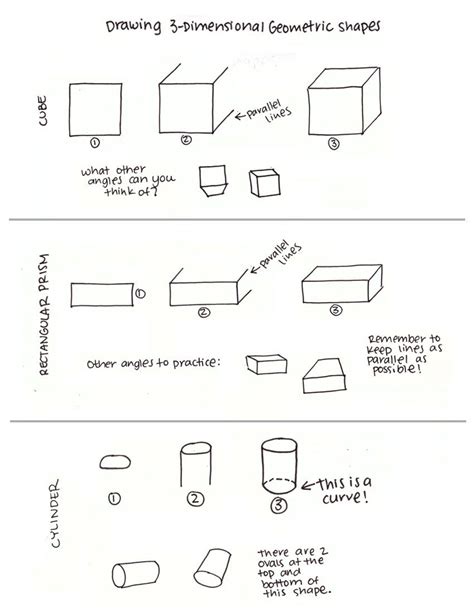 Drawing 3-Dimensional Geometric Shapes
CUBE
parallel
lines
1
2
3
what other
angles can you
think of?
RECTANGULAR PRISM
parallel
lines
1
2
3
Other angles to practice:
Remember to
keep lines as
parallel as
possible!
CYLINDER
1
2
3
this is a
curve!
there are 2
ovals at the
top and
bottom of
this shape.